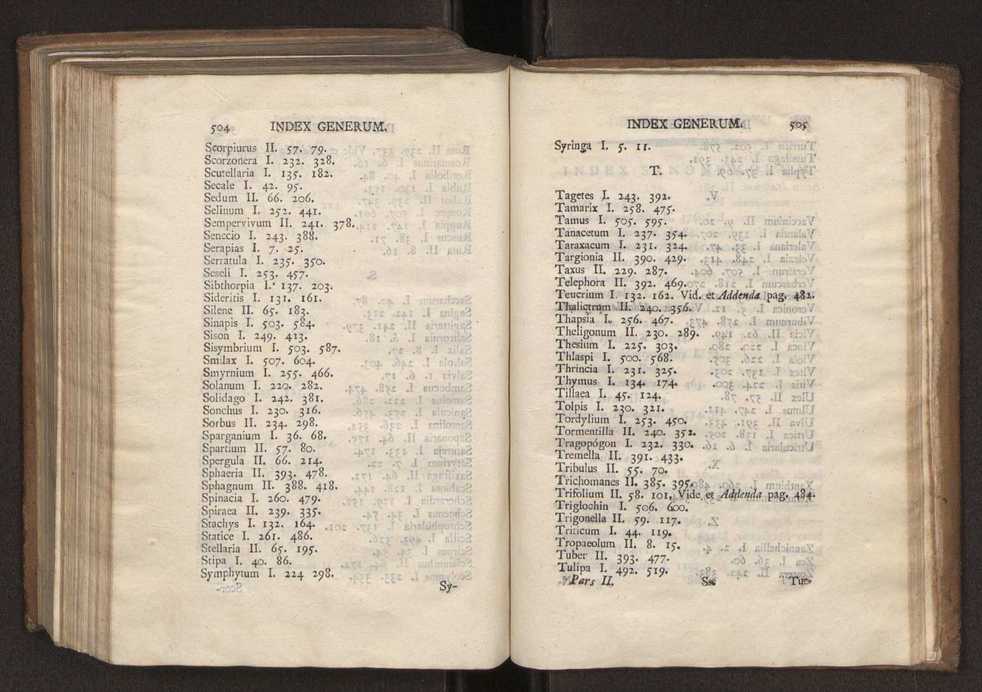 504 INDEX GENERUM.
Scorpiurus II. 57. 79.
Scorzonera I. 232. 328.
Scutellaria I. 135. 182.
Secale I. 42. 95.
Sedum II. 66. 206.
Selinum I. 252. 441.
Sempervivum II. 241. 378.
Senecio I. 243. 388.
Serapias I. 7. 25.
Serratula I. 235. 350.
Seseli I. 253. 457.
Sibthorpia I. 137. 203.
Sideritis I. 131. 161.
Silene II. 65. 183.
Sinapis I. 503. 584.
Sison I. 249. 413.
Sisymbrium I. 503. 587.
Smilax I. 507. 604.
Smyrnium I. 255. 466.
Solanum I. 220. 282.
Solidago I. 242. 381.
Sonchus I. 230. 316.
Sorbus II. 234. 298.
Sparganium I. 36. 68.
Spartium II. 57. 80.
Spergula II. 66. 214.
Sphaeria II. 393. 478.
Sphagnum II. 388. 418.
Spinacia I. 260. 479.
Spiraea II. 239. 335.
Stachys I. 132. 164.
Statice I. 261. 486.
Stellaria II. 65. 195.
Stipa I. 40. 86.
Symphytum I. 224 298.
Sy-
INDEX GENERUM. 505
Syringa I. 5. 11.
T.
Tagetes I. 243. 392.
Tamarix I. 258. 475.
Tamus I. 505. 595.
Tanacetum I. 237. 354.
Taraxacum I. 231. 324.
Targionia II. 390. 429.
Taxus II. 229. 287.
Telephora II. 392. 469.
Teucrium I. 132. 162. Vid. et Addenda pag. 482.
Thalictrum II. 240. 356.
Thapsia I. 256. 467.
Theligonum II. 230. 289.
Thesium I. 225. 303.
Thlaspi I. 500. 568.
Thrincia I. 231. 325.
Thymus I. 134. 174.
Tillaea I. 45. 124.
Tolpis I. 230. 321.
Tordylium I. 253. 450.
Tormentilla II. 240. 352.
Tragopógon I. 232. 330.
Tremella II. 391. 433.
Tribulus II. 55. 70.
Trichomanes II. 385. 395.
Trifolium II. 58. 101. Vide et Addenda pag. 484.
Triglochin I. 506. 600.
Trigonella II. 59. 117.
Triticum I. 44. 119.
Tropaeolum II. 8. 15.
Tuber II. 393. 477.
Tulipa I. 492. 519.
Pars II. Ss Tu-